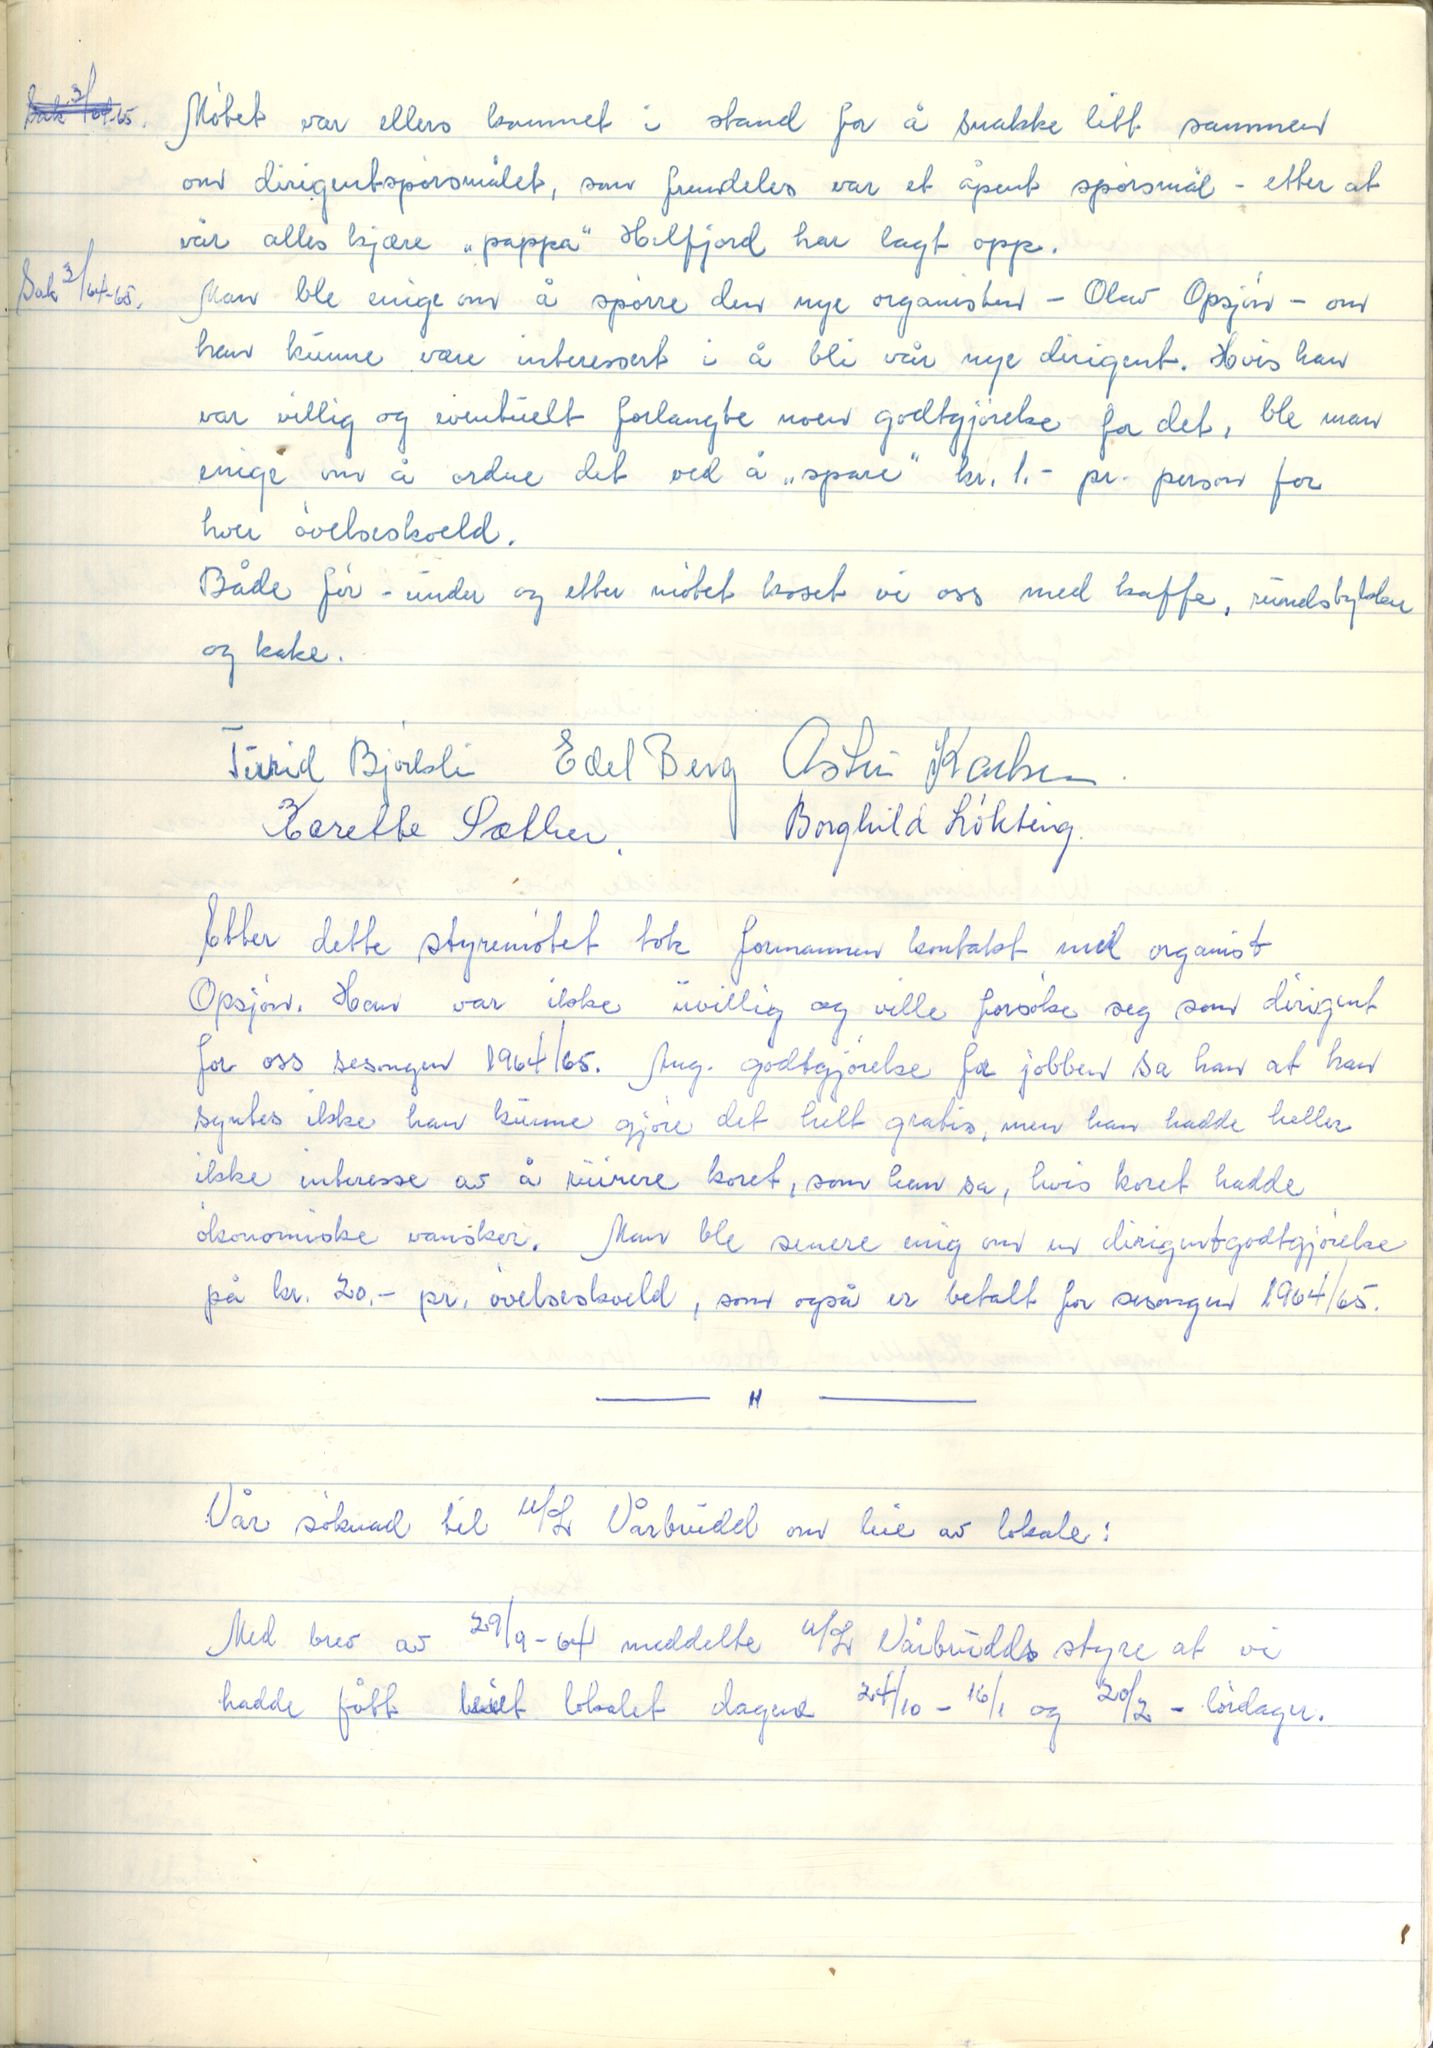 Sak 3/64-65. Møtet var ellers kommet i stand for å snakke litt sammen
om dirigentspørsmålet, som fremdeles var et åpent spørsmål - etter at
vår alles kjære „pappa" Hilfjord har lagt opp.
Sak 3/64-65. Man ble enige om å spørre den nye organisten - Olav Opsjøn - om
han kunne være interessert i å bli vår nye dirigent. Hvis han
var villig og eventuelt forlangte noen godtgjørelse for det, ble man
enige om å ordne det ved å „spare" kr. 1.- pr. person for
hver øvelseskveld.
Både før - under og etter møtet koset vi oss med kaffe, rundstykker
og kake.
Turid Bjørkli Edel Berg Astri Karlsen.
Karette Sæther. Borghild Løkting.
Etter dette styremøtet tok formannen kontakt med organist
Opsjøn. Han var ikke uvillig og ville forsøke seg som dirigent
for oss sesongen 1964/65. Ang. godtgjørelse for jobben sa han at han
syntes ikke han kunne gjøre det helt gratis, men han hadde heller
ikke interesse av å ruinere koret, som han sa, hvis koret hadde
økonomiske vansker. Man ble senere enig om en dirigentgodtgjørelse
på kr. 20.- pr. øvelseskveld, som også er betalt for sesongen 1964/65.
— " —
Vår søknad til u/L Vårbrudd om leie av lokale:
Med brev av 29/9-64 meddelte u/L Vårbrudds styre at vi
hadde fått leiet lokalet dagene 24/10 - 16/1 og 20/2 - lørdager.